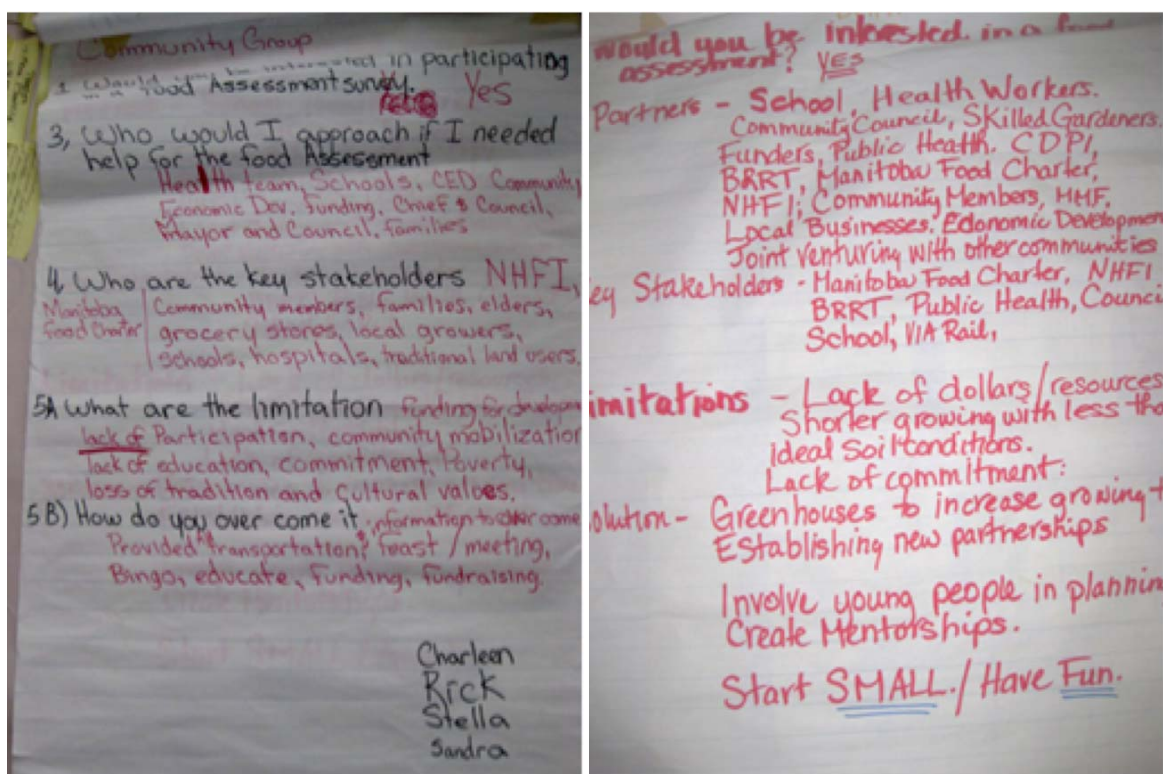 Community Group
1. Would in participating
food Assessment survey. Yes
3, Who would I approach if I needed
help for the food Assessment
Health team, Schools, CED Community
Economic Dev. funding, Chief & Council,
Mayor and Council. families
4, Who are the key stakeholders NHFI,
Manitoba
Food Charter
Community members, families, elders,
grocery stores, local growers,
schools, hospitals, traditional land users.
5A What are the limitation funding for
lack of Participation, community mobilization
lack of education, commitment, Poverty,
loss of tradition and cultural values.
5B) How do you over come it information to over come
Provided transportation? feast / meeting,
Bingo, educate, funding, fundraising.
Charleen
Rick
Stella
Sandra
would you be interested in a food
assessment? YES
Partners - School, Health Workers.
Community Council, Skilled Gardeners.
Funders, Public Health. CDPI,
BRRT, Manitoba Food Charter,
NHFI; Community Members, MMF,
Local Businesses. Edonomic Developmen
Joint venturing with other communities
ey Stakeholders - Manitoba Food Charter, NHFI
BRRT, Public Health, Counci
School, VIA Rail,
imitations - Lack of dollars/resources
Shorter growing with less tha
ideal Soil Conditions.
Lack of commitment:
olution - Greenhouses to increase growing t
Establishing new partnerships
Involve young people in planning
Create Mentorships.
Start SMALL./Have Fun.